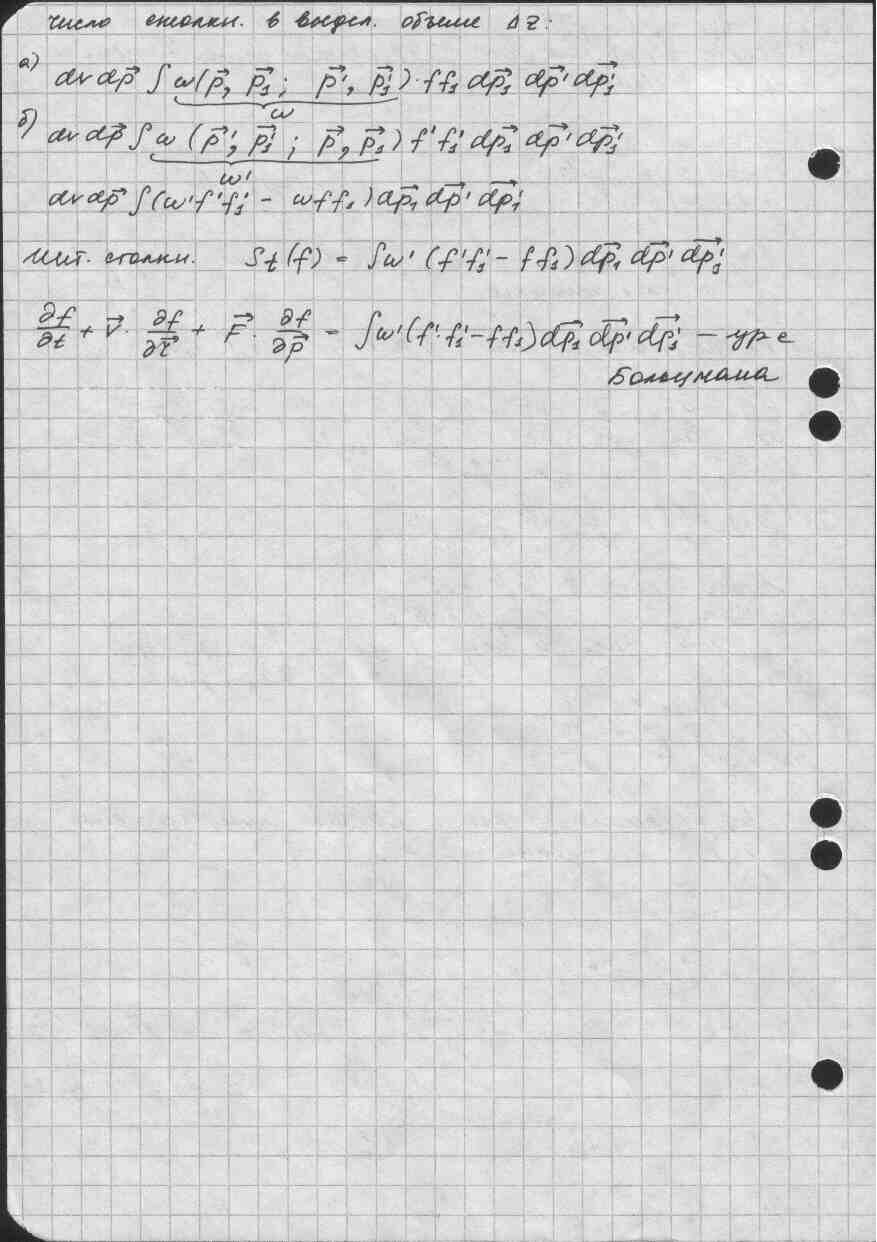 число столкн. в выдел. объеме Δz:
а) dv dp⃗ ∫ ω(p⃗, p⃗₁; p⃗', p⃗₁')·ff₁ dp⃗₁ dp⃗' dp⃗₁'
ω
б) dv dp⃗ ∫ ω (p⃗', p⃗₁'; p⃗, p⃗₁) f'f₁' dp⃗₁ dp⃗' dp⃗₁'
ω'
dv dp⃗ ∫(ω'f'f₁' - ωff₁) dp⃗₁ dp⃗' dp⃗₁'
инт. столкн. St(f) = ∫ω' (f'f₁' - ff₁) dp⃗₁ dp⃗' dp⃗₁'
∂f/∂t + v⃗·∂f/∂r⃗ + F⃗·∂f/∂p⃗ = ∫ω'(f'·f₁' - ff₁) dp⃗₁ dp⃗' dp⃗₁' — ур е
Больцмана